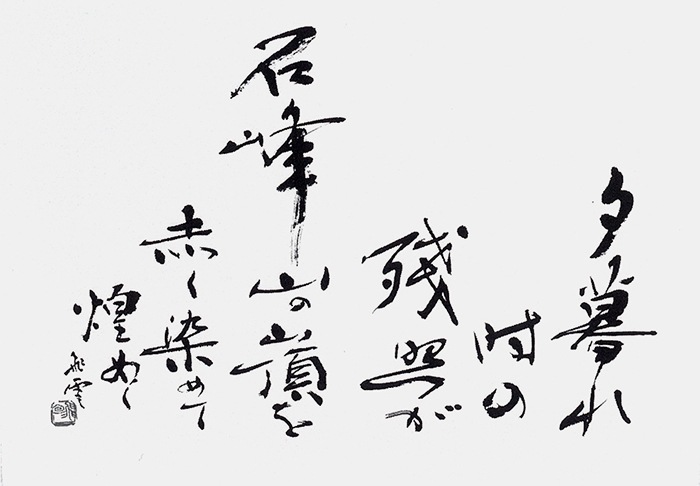 夕暮れ
時の
残照が
石峰山の嶺を
赤く染めて
煌めく
飛雲